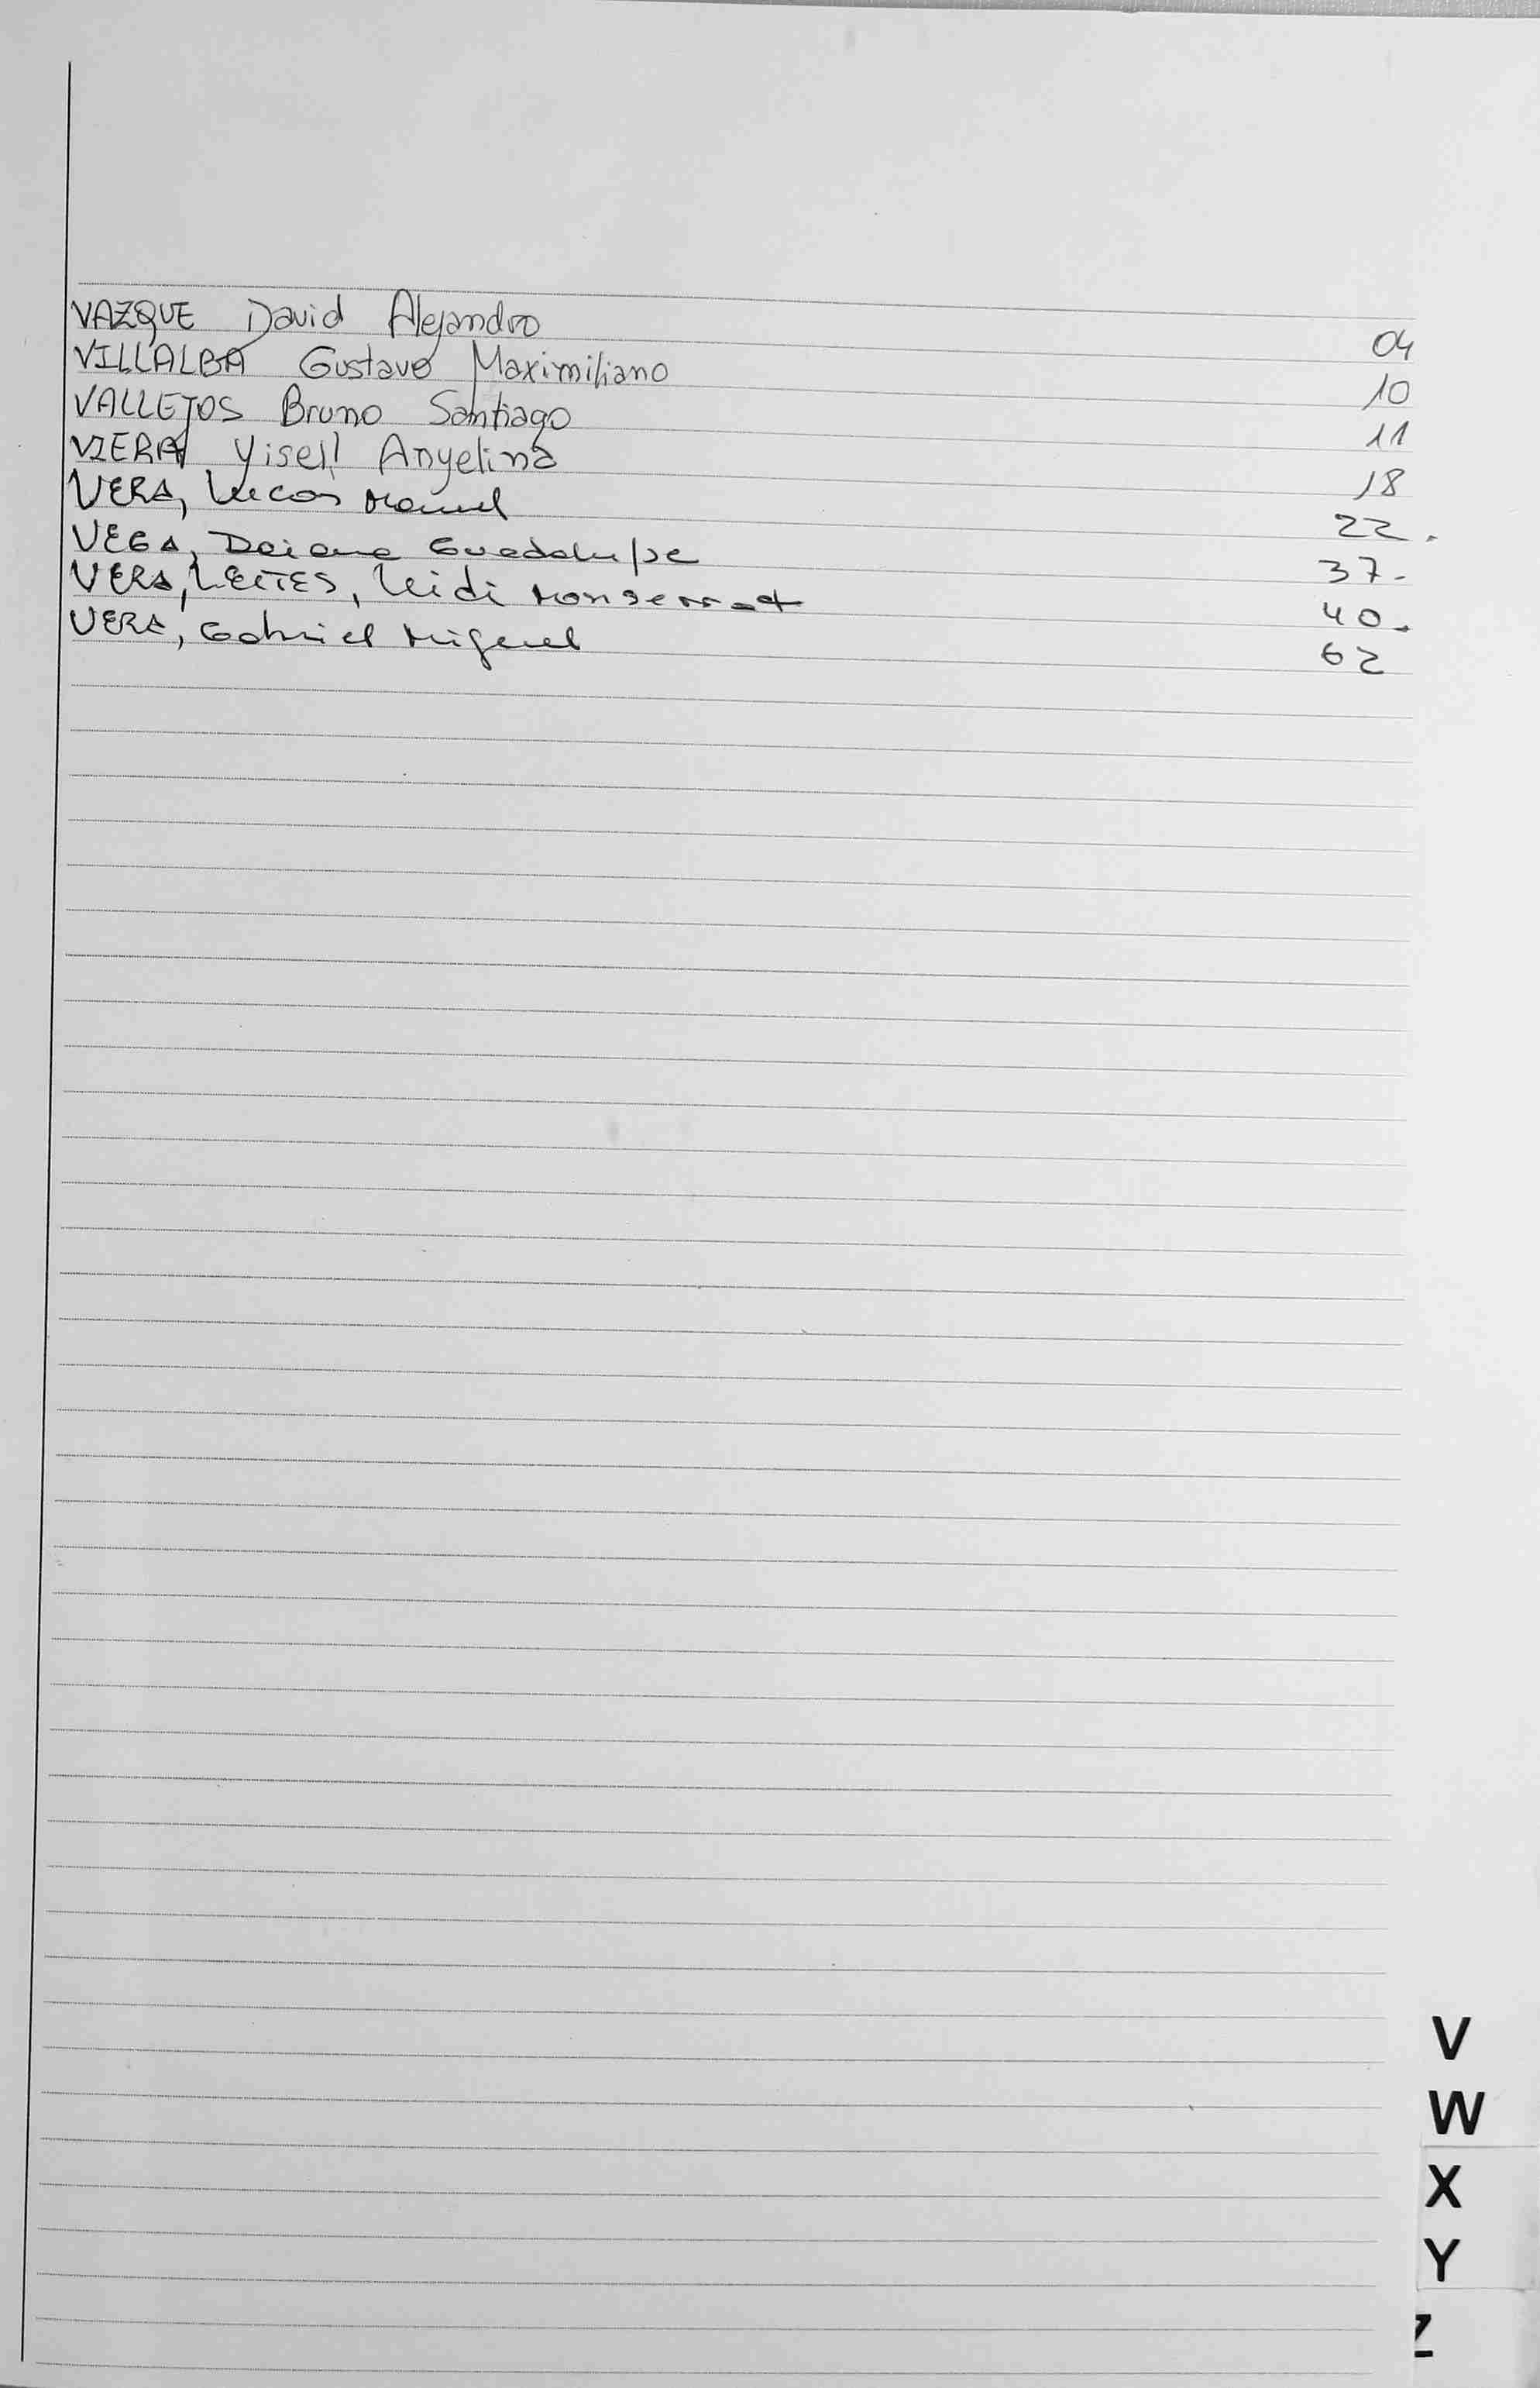 VAZQUE David Alejandro 04
VILLALBA Gustavo Maximiliano 10
VALLEJOS Bruno Santiago 11
VIERA Yisell Anyelina 18
VERA, Lucas Manuel 22.
VEGA, Daiana Guadalupe 37-
VERA, LEITES, Leidi Monserrat 40.
VERA, Gabriel Miguel 62
V
W
X
Y
Z